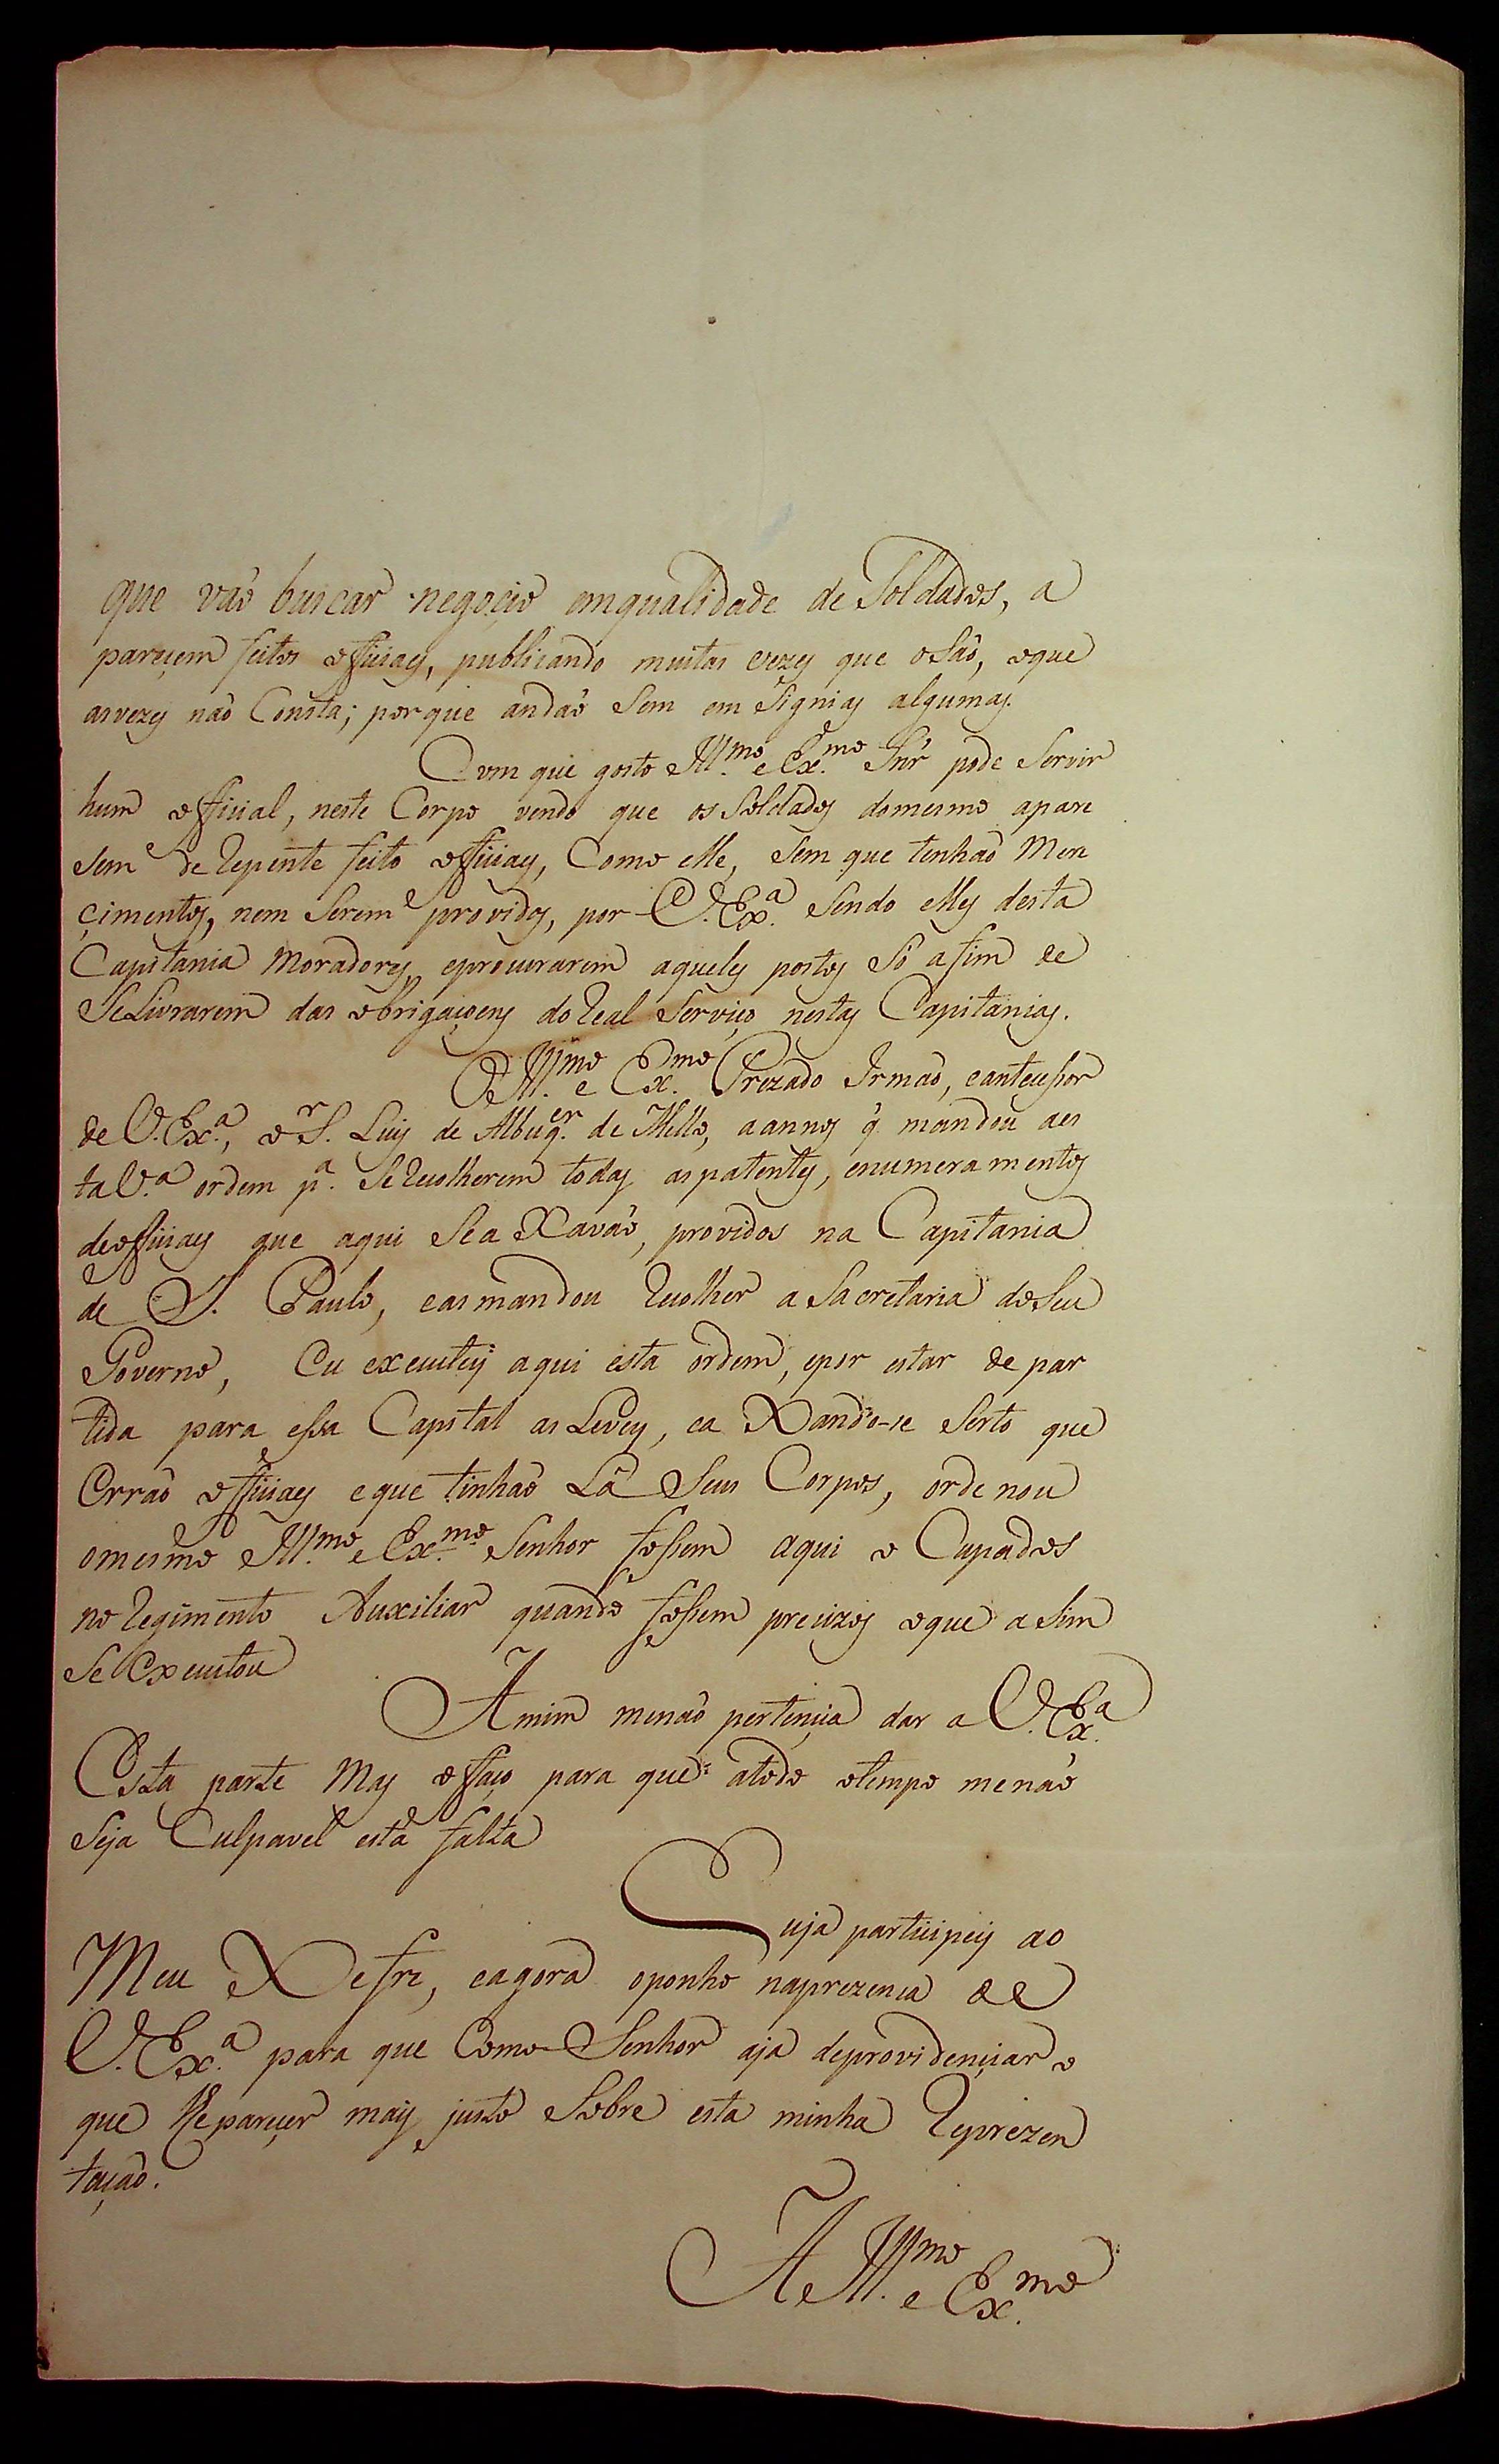 que vaõ buscar negoçio emqualidade de Soldados, a
pareçem feitos officiaes, publicando muitas vezes que o Saõ, oque
asvezes naõ Consta; porque andaõ Sem em Signias algumas.
Com que gosto Ill.mo e Ex.mo Snr pode Servir
hum official, neste Corpo vendo que os Soldados domesmo apare
sem de Repente feito officiaes, Como elle, Sem que tenhaõ Mere
çimentos, nem Serem providos, por V. Ex.a Sendo elles desta
Capitania Moradores, eprocurarem aqueles postos Só afim de
SeLivrarem das obrigaçoens doReal Serviço nestas Capitanias.
O Ill.mo e Ex.mo Prezado Irmaõ, eanteçessor
de V. Ex.a, o Sr. Luis de Albuq.er de Mello, aannos q̃ mandou aes
ta V.a ordem p.a SeRecolherem todas aspatentes, enumeramentos
deofficiaes que aqui Sea Xavaõ, providos na Capitania
de S. Paulo, easmandou Recolher a Sacretaria doSeu
Governo, Eu executey aqui esta ordem, epor estar de par
tida para essa Capital as Levey, ea Xando-se Serto que
Erraõ officiaes eque tinhaõ Lâ Seus Corpos, ordenou
omesmo Ill.mo e Ex.mo Senhor fossem aqui o Cupados
no Regimento Auxiliar quando fossem precizos oque a Sim
Se Executou
Amim menaõ pertençia dar a V. Ex.a
Esta parte Mas ofaço para que atodo otempo menaõ
Seja Culpavel esta falta
Cuja participey ao
Meu Xefre, eagora oponho naprezença de
V. Ex.a para que Como Senhor aja deprovidençiar o
que lheparecer mais justo Sobre esta minha Reprezen
taçaõ.
A Ill.mo e Ex.mo